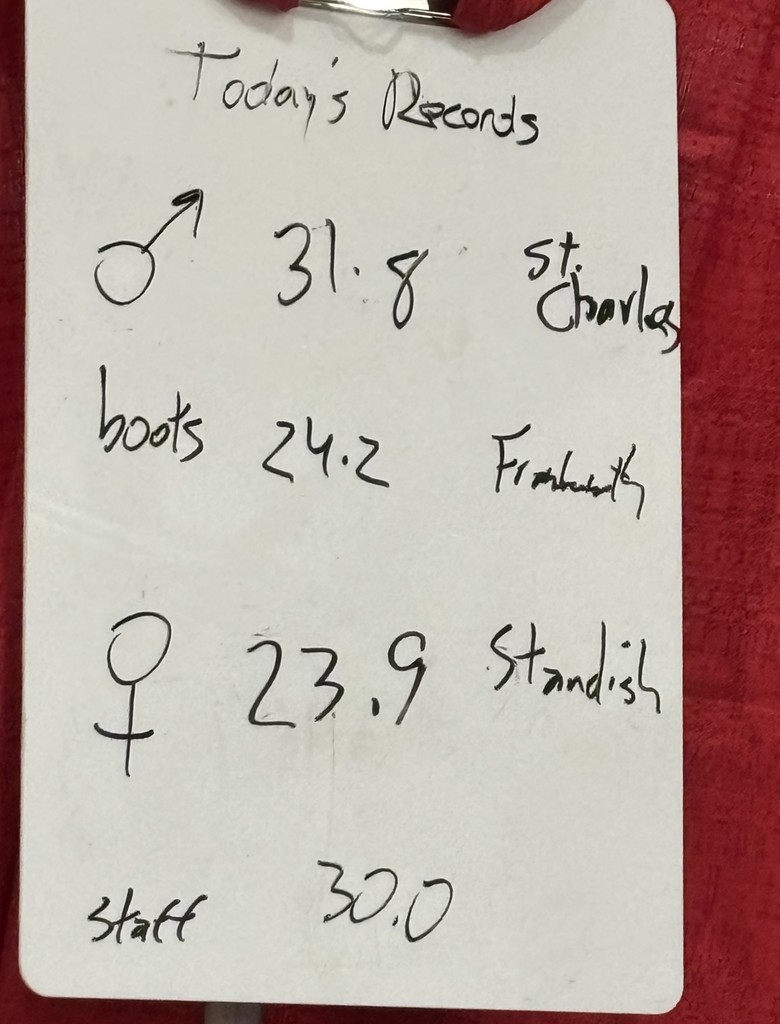 Today's Records
♂ 31.8 St. Charles
boots 24.2
♀ 23.9 Standish
staff 30.0